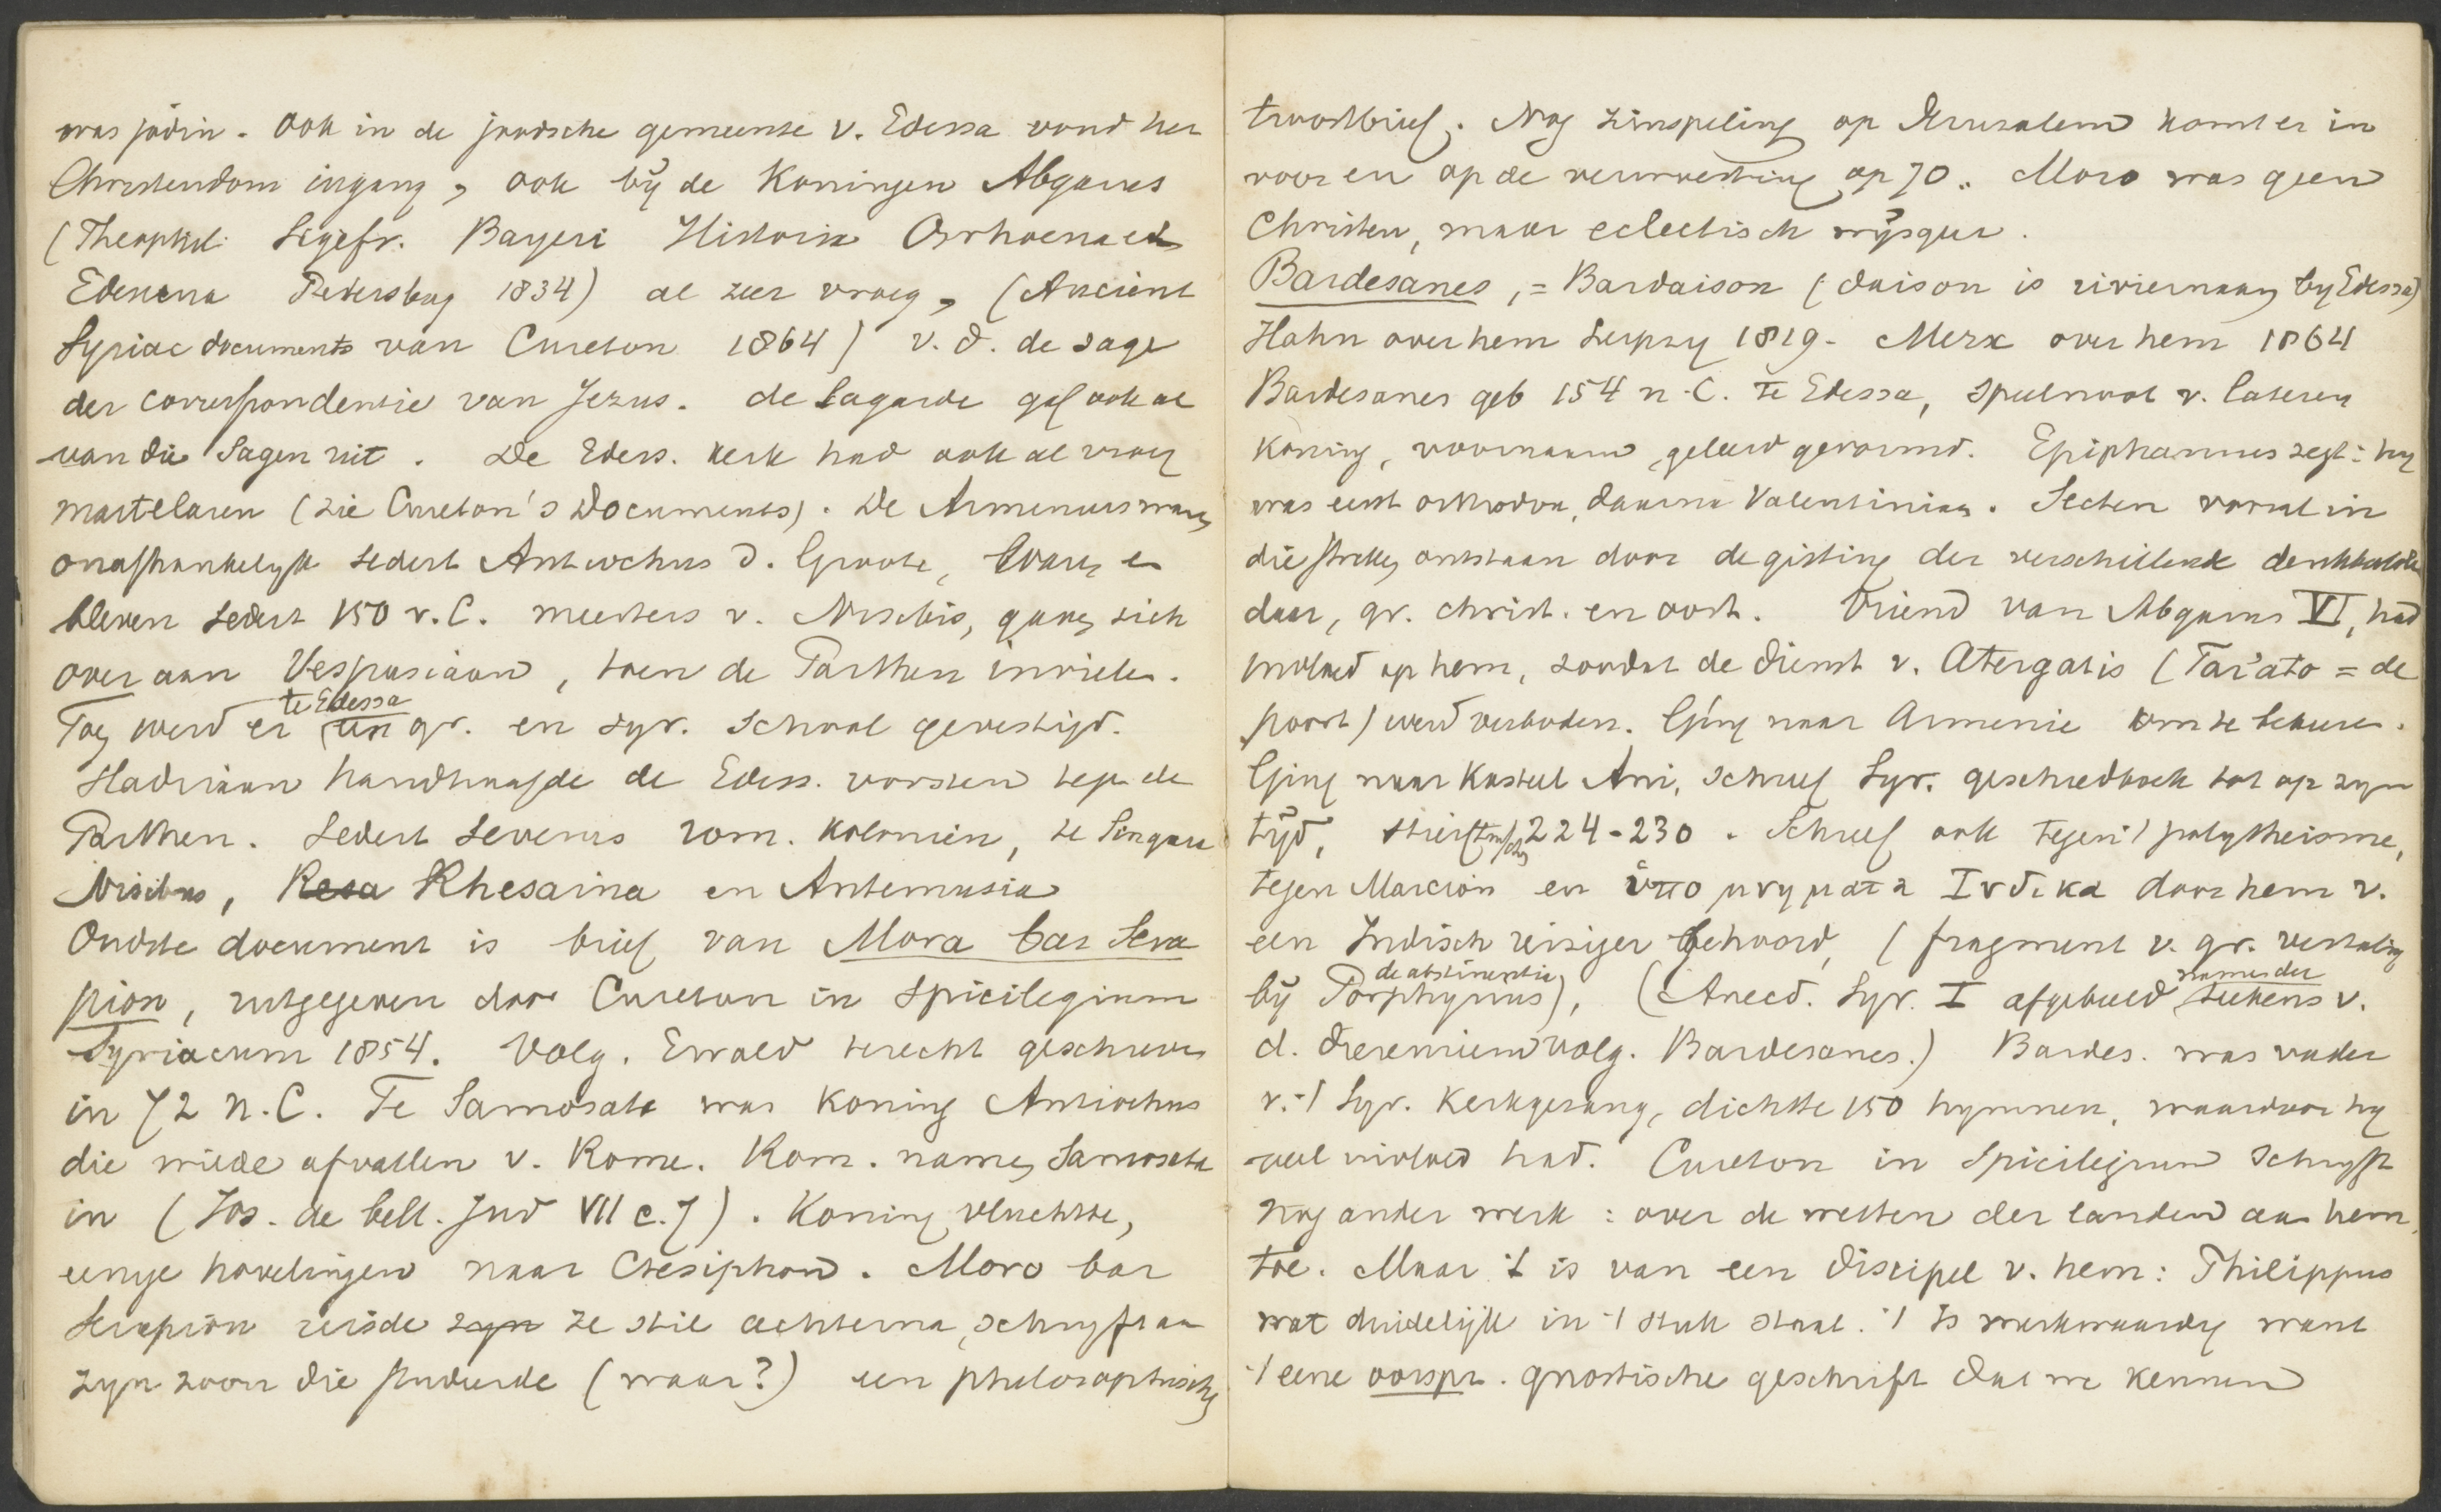 was jodin. Ook in de joodsche gemeente v. Edessa vond het
Christendom ingang, ook bij de Koningen Abgarus
(Theophil. Sigefr. Bayeri Historia Osrhoena et
Edessena Petersburg 1834) al zeer vroeg, (Ancient
Syriac documents van Cureton 1864) v. d. de sage
der correspondentie van Jezus. de Lagarde gaf ook al
van die Sagen uit. De Edess. kerk had ook al vroeg
martelaren (zie Cureton's Documents). De Armeniers waren
onafhankelijk sedert Antiochus d. Groote, waren en
bleven sedert 150 v. C. meesters v. Nisibis, gaven zich
over aan Vespasiaan, toen de Parthen invielen.
Toen werd er te Edessa een gr. en syr. School gevestigd.
Hadriaan handhaafde de Edess. vorsten tegen de
Parthen. Sedert Severus rom. kolonien, te Singara
Nisibis, Resa Rhesaina en Antemusia
Oudste document is brief van Mara bar Sera
pion, uitgegeven door Cureton in Spicilegium
Syriacum 1854. Volg. Ewald terecht geschreven
in 72 n. C. Te Samosata was Koning Antiochus
die wilde afvallen v. Rome. Rom. namen Samosata
in (Jos. de bell. Jud VII c. 7). Koning vluchtte,
eenige hovelingen naar Ctesiphon. Moro bar
Serapion reisde zyn ze stil achterna, schryft aan
zyn zoon die studeerde (waar?) een philosophischen
troostbrief. Nog zinspeling op Jeruzalem komt er in
voor en op de verwoesting op 70. Moro was geen
Christen, maar eclectisch wijsgeer.
Bardesanes, = Bardaison (daison is riviernaam by Edessa)
Hahn over hem Leipzig 1819. Merx over hem 1864
Bardesanes geb 154 n. C. te Edessa, speelnoot v. lateren
koning, voornaam, geleerd gevormd. Epiphanius zegt: hy
was eerst orthodox, daarna Valentiniaan. Secten vooral in
die streken ontstaan door de gisting der verschillende denkbeelden
daar, gr. christ. en oost. Vriend van Abgarus VI, had
invloed op hem, zoodat de dienst v. Atergatis (Tar'ato = de
poort) werd verboden. Ging naar Armenie om te bekeeren.
Ging naar Kasteel Ani, schreef Syr. geschiedboek tot op zyn
tijd, stierf tusschen 224-230. Schreef ook tegen 't polytheisme,
tegen Marcion en ὑπομνηματα Ινδικα door hem v.
een Indisch reiziger gehoord, (fragment v. gr. vertaling
by Porphyrius de abstinentia), (Anecd. Syr. I afgebeeld namen der teekens v.
d. dierenriem volg. Bardesanes.) Bardes. was vader
v. 't Syr. Kerkgezang, dichtte 150 hymnen, waardoor hy
veel invloed had. Cureton in Spicilegium schryft
nog ander werk: over de wetten der landen aan hem
toe. Maar 't is van een discipel v. hem: Philippus
wat duidelijk in 't stuk staat. 't Is merkwaardig want
't eene oorspr. gnostische geschrift dat we kennen